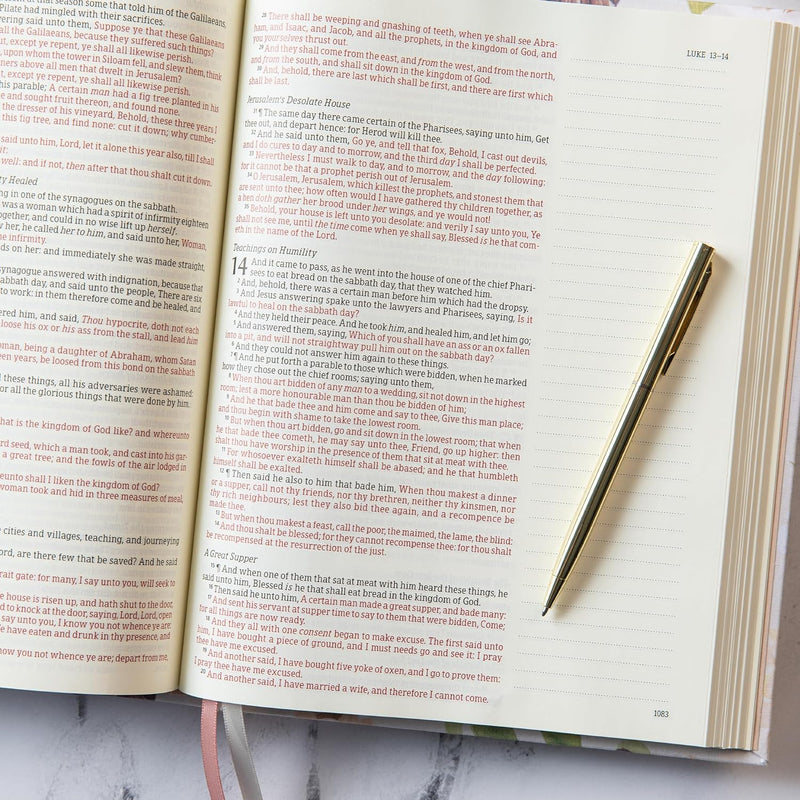 at season some that told him of the Galilaeans,
Pilate had mingled with their sacrifices.
ering said unto them, Suppose ye that these Galilaeans
all the Galilaeans, because they suffered such things?
ut, except ye repent, ye shall all likewise perish.
upon whom the tower in Siloam fell, and slew them, think
nners above all men that dwelt in Jerusalem?
t, except ye repent, ye shall all likewise perish.
his parable; A certain man had a fig tree planted in his
e and sought fruit thereon, and found none.
the dresser of his vineyard, Behold, these three years I
this fig tree, and find none: cut it down; why cumber-
said unto him, Lord, let it alone this year also, till I shall
it:
well: and if not, then after that thou shalt cut it down.
ty Healed
ng in one of the synagogues on the sabbath.
was a woman which had a spirit of infirmity eighteen
ogether, and could in no wise lift up herself.
w her, he called her to him, and said unto her, Woman,
e infirmity.
ds on her: and immediately she was made straight,
synagogue answered with indignation, because that
abbath day, and said unto the people, There are six
to work: in them therefore come and be healed, and
ered him, and said, Thou hypocrite, doth not each
loose his ox or his ass from the stall, and lead him
oman, being a daughter of Abraham, whom Satan
een years, be loosed from this bond on the sabbath
d these things, all his adversaries were ashamed:
or all the glorious things that were done by him.
hat is the kingdom of God like? and whereunto
rd seed, which a man took, and cast into his gar-
a great tree; and the fowls of the air lodged in
eunto shall I liken the kingdom of God?
woman took and hid in three measures of meal,
cities and villages, teaching, and journeying
ord, are there few that be saved? And he said
rait gate: for many, I say unto you, will seek to
e house is risen up, and hath shut to the door,
d to knock at the door, saying, Lord, Lord, open
say unto you, I know you not whence ye are:
We have eaten and drunk in thy presence, and
now you not whence ye are; depart from me,
28 There shall be weeping and gnashing of teeth, when ye shall see Abra-
ham, and Isaac, and Jacob, and all the prophets, in the kingdom of God, and
you yourselves thrust out.
29 And they shall come from the east, and from the west, and from the north,
and from the south, and shall sit down in the kingdom of God.
30 And, behold, there are last which shall be first, and there are first which
shall be last.
Jerusalem's Desolate House
31 ¶ The same day there came certain of the Pharisees, saying unto him, Get
thee out, and depart hence: for Herod will kill thee.
32 And he said unto them, Go ye, and tell that fox, Behold, I cast out devils,
and I do cures to day and to morrow, and the third day I shall be perfected.
33 Nevertheless I must walk to day, and to morrow, and the day following:
for it cannot be that a prophet perish out of Jerusalem.
34 O Jerusalem, Jerusalem, which killest the prophets, and stonest them that
are sent unto thee; how often would I have gathered thy children together, as
a hen doth gather her brood under her wings, and ye would not!
35 Behold, your house is left unto you desolate: and verily I say unto you, Ye
shall not see me, until the time come when ye shall say, Blessed is he that com-
eth in the name of the Lord.
Teachings on Humility
14 And it came to pass, as he went into the house of one of the chief Phari-
sees to eat bread on the sabbath day, that they watched him.
2 And, behold, there was a certain man before him which had the dropsy.
3 And Jesus answering spake unto the lawyers and Pharisees, saying, Is it
lawful to heal on the sabbath day?
4 And they held their peace. And he took him, and healed him, and let him go;
5 And answered them, saying, Which of you shall have an ass or an ox fallen
into a pit, and will not straightway pull him out on the sabbath day?
6 And they could not answer him again to these things.
7 ¶ And he put forth a parable to those which were bidden, when he marked
how they chose out the chief rooms; saying unto them,
8 When thou art bidden of any man to a wedding, sit not down in the highest
room; lest a more honourable man than thou be bidden of him;
9 And he that bade thee and him come and say to thee, Give this man place;
and thou begin with shame to take the lowest room.
10 But when thou art bidden, go and sit down in the lowest room; that when
he that bade thee cometh, he may say unto thee, Friend, go up higher: then
shalt thou have worship in the presence of them that sit at meat with thee.
11 For whosoever exalteth himself shall be abased; and he that humbleth
himself shall be exalted.
12 ¶ Then said he also to him that bade him, When thou makest a dinner
or a supper, call not thy friends, nor thy brethren, neither thy kinsmen, nor
thy rich neighbours; lest they also bid thee again, and a recompence be
made thee.
13 But when thou makest a feast, call the poor, the maimed, the lame, the blind:
14 And thou shalt be blessed; for they cannot recompense thee: for thou shalt
be recompensed at the resurrection of the just.
A Great Supper
15 ¶ And when one of them that sat at meat with him heard these things, he
said unto him, Blessed is he that shall eat bread in the kingdom of God.
16 Then said he unto him, A certain man made a great supper, and bade many:
17 And sent his servant at supper time to say to them that were bidden, Come;
for all things are now ready.
18 And they all with one consent began to make excuse. The first said unto
him, I have bought a piece of ground, and I must needs go and see it: I pray
thee have me excused.
19 And another said, I have bought five yoke of oxen, and I go to prove them:
I pray thee have me excused.
20 And another said, I have married a wife, and therefore I cannot come.
LUKE 13–14
1083